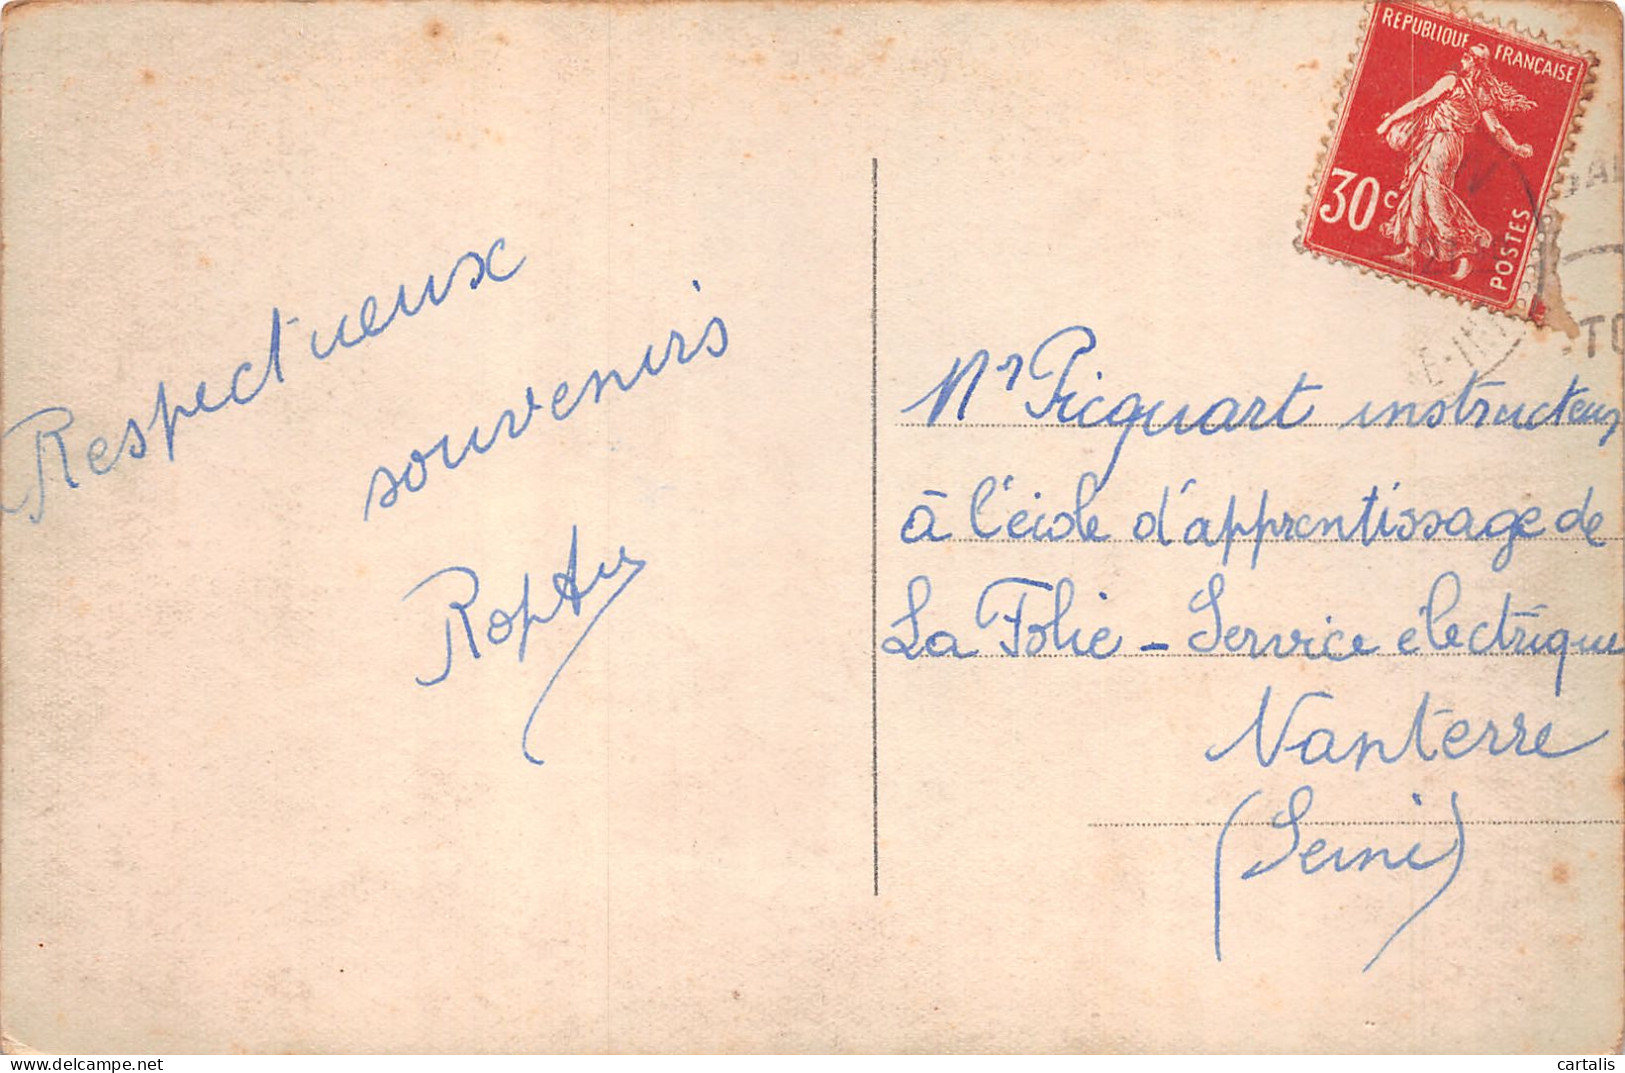 Respectueux
souvenirs
REPUBLIQUE FRANÇAISE
30c
POSTES
Mr Picquart instructeur
à l'école d'apprentissage de
La Folie - Service électrique
Nanterre
(Seine)
cartalis